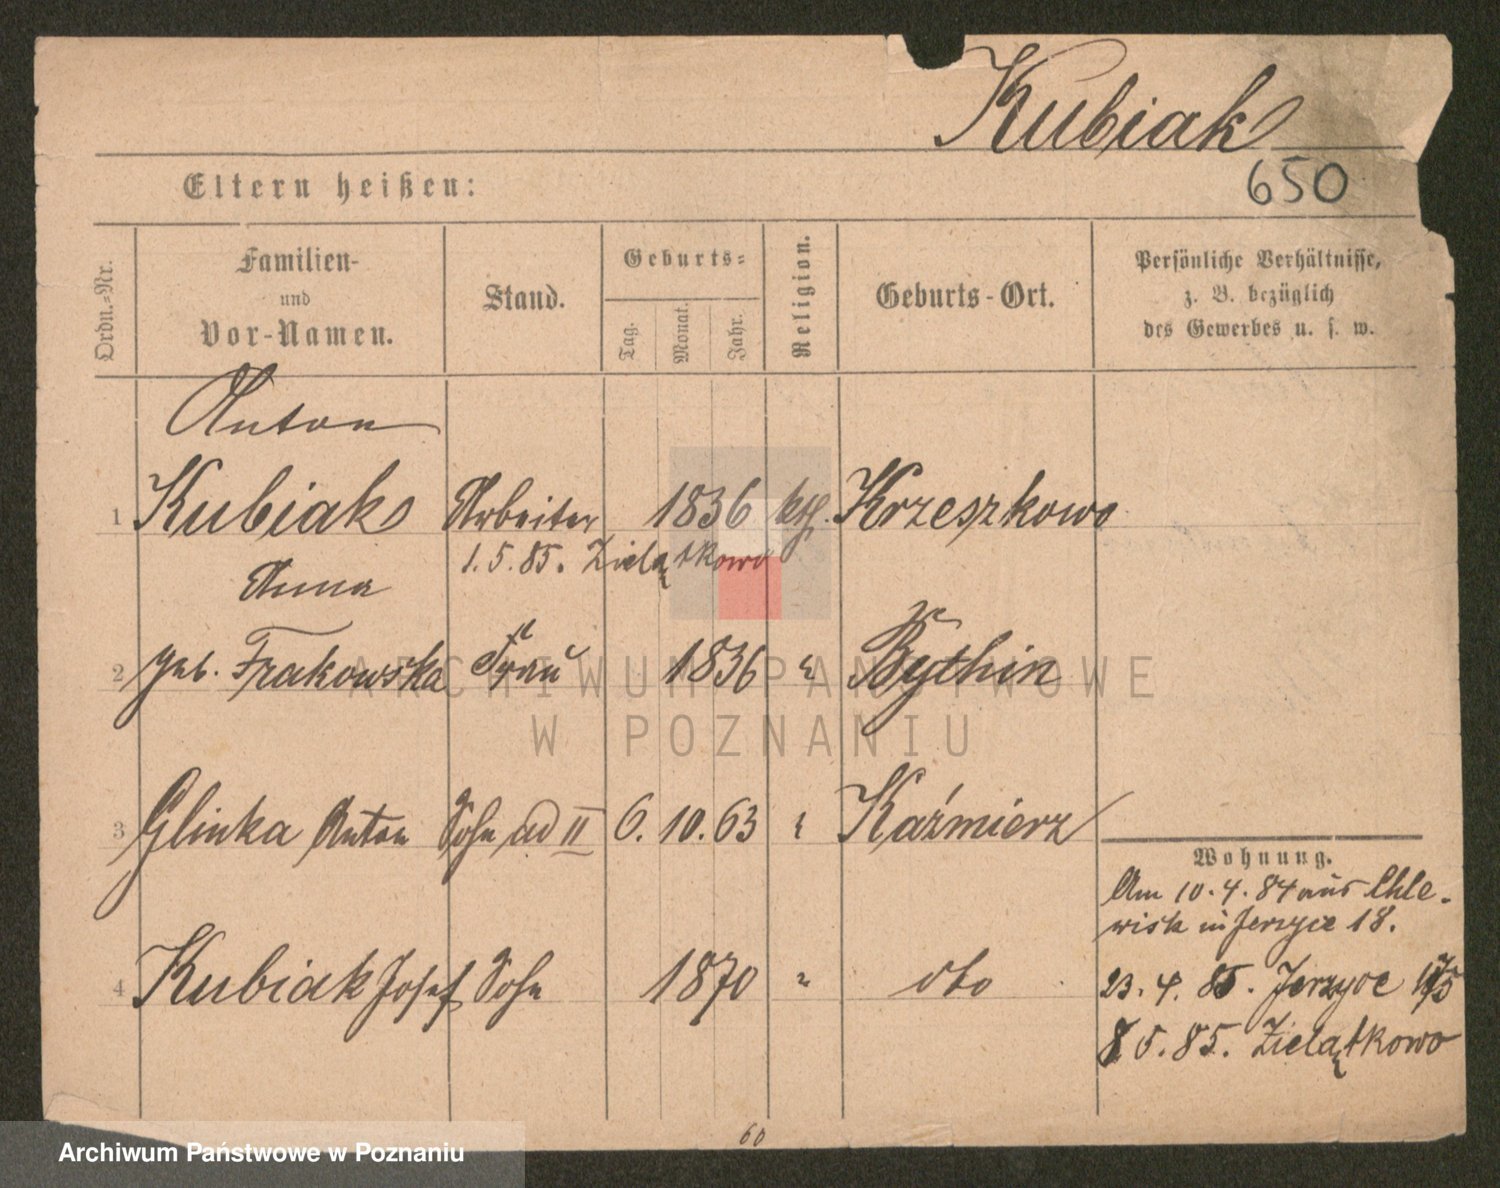 Kubiak
650
Eltern heißen:
Ordn.-Nr.
Familien-
und
Vor-Namen.
Stand.
Geburts-
Tag.
Monat.
Jahr.
Religion.
Geburts-Ort.
Persönliche Verhältnisse,
z. B. bezüglich
des Gewerbes u. s. w.
Anton
1 Kubiak Arbeiter 1836 kth. Krzeszkowo
1.5.85. Zielątkowo
Anna
2 geb. Frakowska Frau 1836 " Bythin
3 Glinka Anton Sohn ad II 6. 10. 63 " Kaźmierz
Wohnung.
Am 10.4.84 aus Chle-
wisk in Jerzyce 18.
4 Kubiak Josef Sohn 1870 " dto
23.4.85. Jerzyce
5.85. Zielątkowo
60
ARCHIWUM PAŃSTWOWE
W POZNANIU
Archiwum Państwowe w Poznaniu